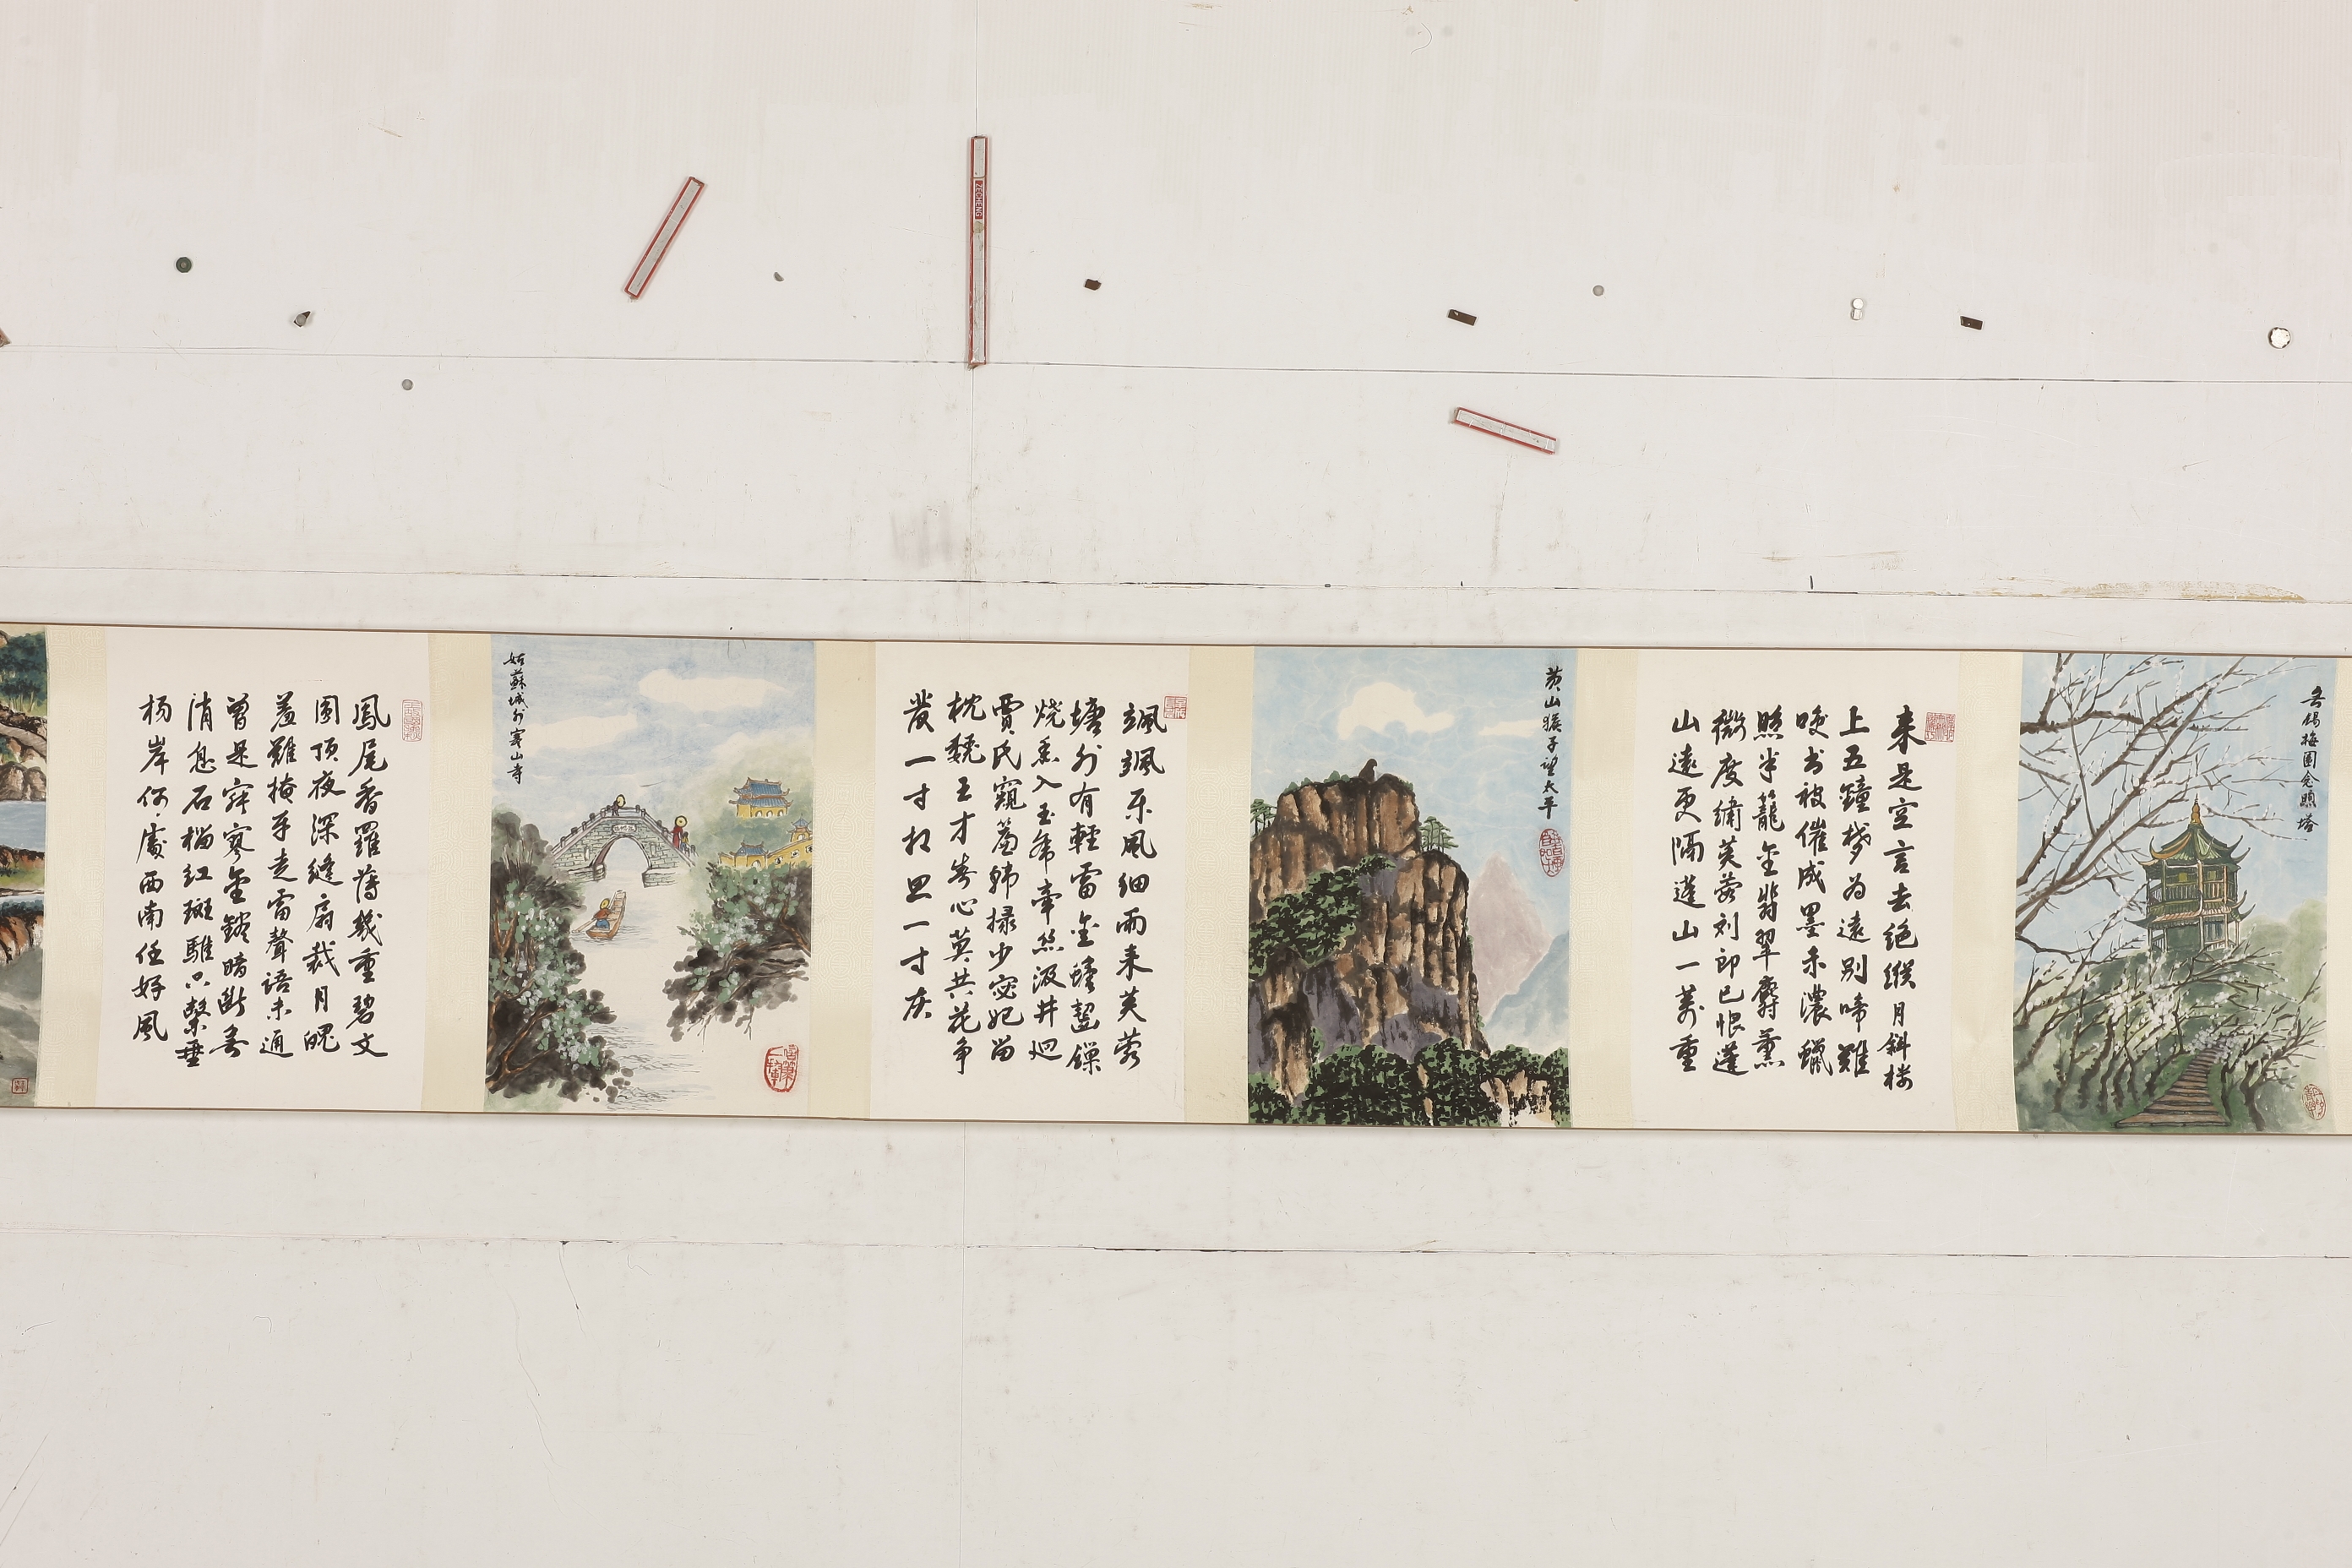 无锡梅園念照塔
来是空言去绝踪月斜楼
上五鐘梦为遠别啼難
唤书被催成墨未濃蠟
照半籠金翡翠麝熏
微度繡芙蓉刘郎已恨蓬
山遠更隔蓬山一萬重
黄山猴子望太平
颯颯东風细雨来芙蓉
塘外有輕雷金蟾齧鏁
烧香入玉虎牽丝汲井迴
賈氏窺簾韩掾少宓妃留
枕魏王才春心莫共花争
發一寸相思一寸灰
姑蘇城外寒山寺
鳳尾香羅薄幾重碧文
圓顶夜深缝扇裁月魄
羞難掩手走雷聲語未通
曾是寂寥金鎔暗断无
消息石榴红斑騅只繫垂
杨岸何處西南任好風